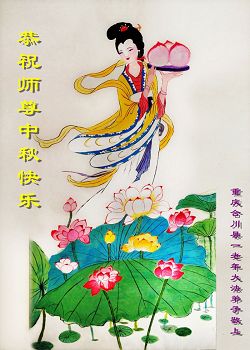 恭祝师尊中秋快乐
重庆合川县一老年大法弟子敬上